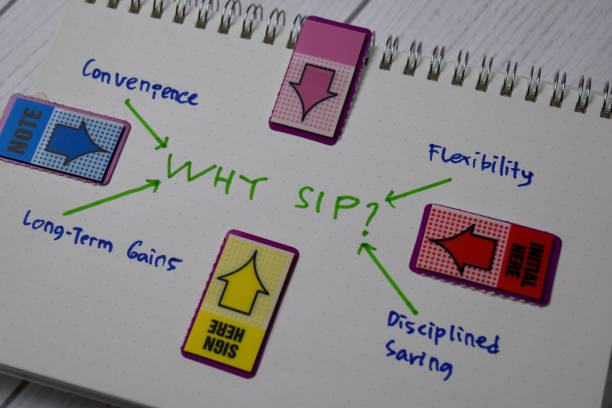 Convenience
NOTE
WHY SIP?
Flexibility
Long-Term Gains
INITIAL
HERE
SIGN
HERE
Disciplined
Saving